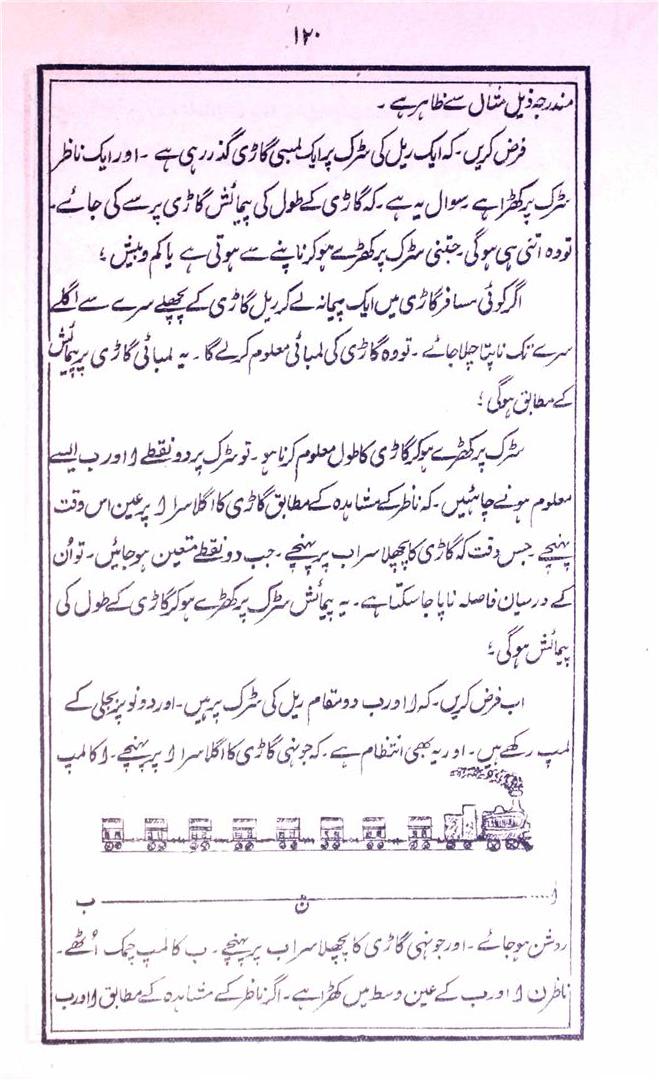 ۱۲۰
مندرجہ ذیل مثال سے ظاہر ہے ۔
فرض کریں ۔ کہ ایک ریل کی سڑک پر ایک لمبی گاڑی گذر رہی ہے ۔ اور ایک ناظر
سڑک پر کھڑا ہے سوال یہ ہے ۔ کہ گاڑی کے طول کی پیمائش گاڑی پر سے کی جائے ۔
تو وہ اتنی ہی ہو گی ۔ جتنی سڑک پر کھڑے ہو کر ناپنے سے ہوتی ہے یا کم و بیش ؛
اگر کوئی مسافر گاڑی میں ایک پیمانہ لے کر ریل گاڑی کے پچھلے سرے سے اگلے
سرے تک ناپتا چلا جائے ۔ تو وہ گاڑی کی لمبائی معلوم کر لے گا ۔ یہ لمبائی گاڑی پر پیمائش
کے مطابق ہو گی ؛
سڑک پر کھڑے ہو کر گاڑی کا طول معلوم کرنا ہو ۔ تو سڑک پر دو نقطے ا اور ب ایسے
معلوم ہونے چاہئیں ۔ کہ ناظر کے مشاہدہ کے مطابق گاڑی کا اگلا سرا ا پر عین اس وقت
پہنچے ۔ جس وقت کہ گاڑی کا پچھلا سرا ب پر پہنچے ۔ جب دو نقطے متعین ہو جائیں ۔ تو اُن
کے درمیان فاصلہ ناپا جا سکتا ہے ۔ یہ پیمائش سڑک پر کھڑے ہو کر گاڑی کے طول کی
پیمائش ہو گی ؛
اب فرض کریں ۔ کہ ا اور ب دو مقام ریل کی سڑک پر ہیں ۔ اور دونو پر بجلی کے
لمپ رکھے ہیں ۔ اور یہ بھی انتظام ہے ۔ کہ جونہی گاڑی کا اگلا سرا ا پر پہنچے ۔ ا کا لمپ
ا ن ب
روشن ہو جائے ۔ اور جونہی گاڑی کا پچھلا سرا ب پر پہنچے ۔ ب کا لمپ چمک اُٹھے ۔
ناظر ن ا اور ب کے عین وسط میں کھڑا ہے ۔ اگر ناظر کے مشاہدہ کے مطابق ا اور ب